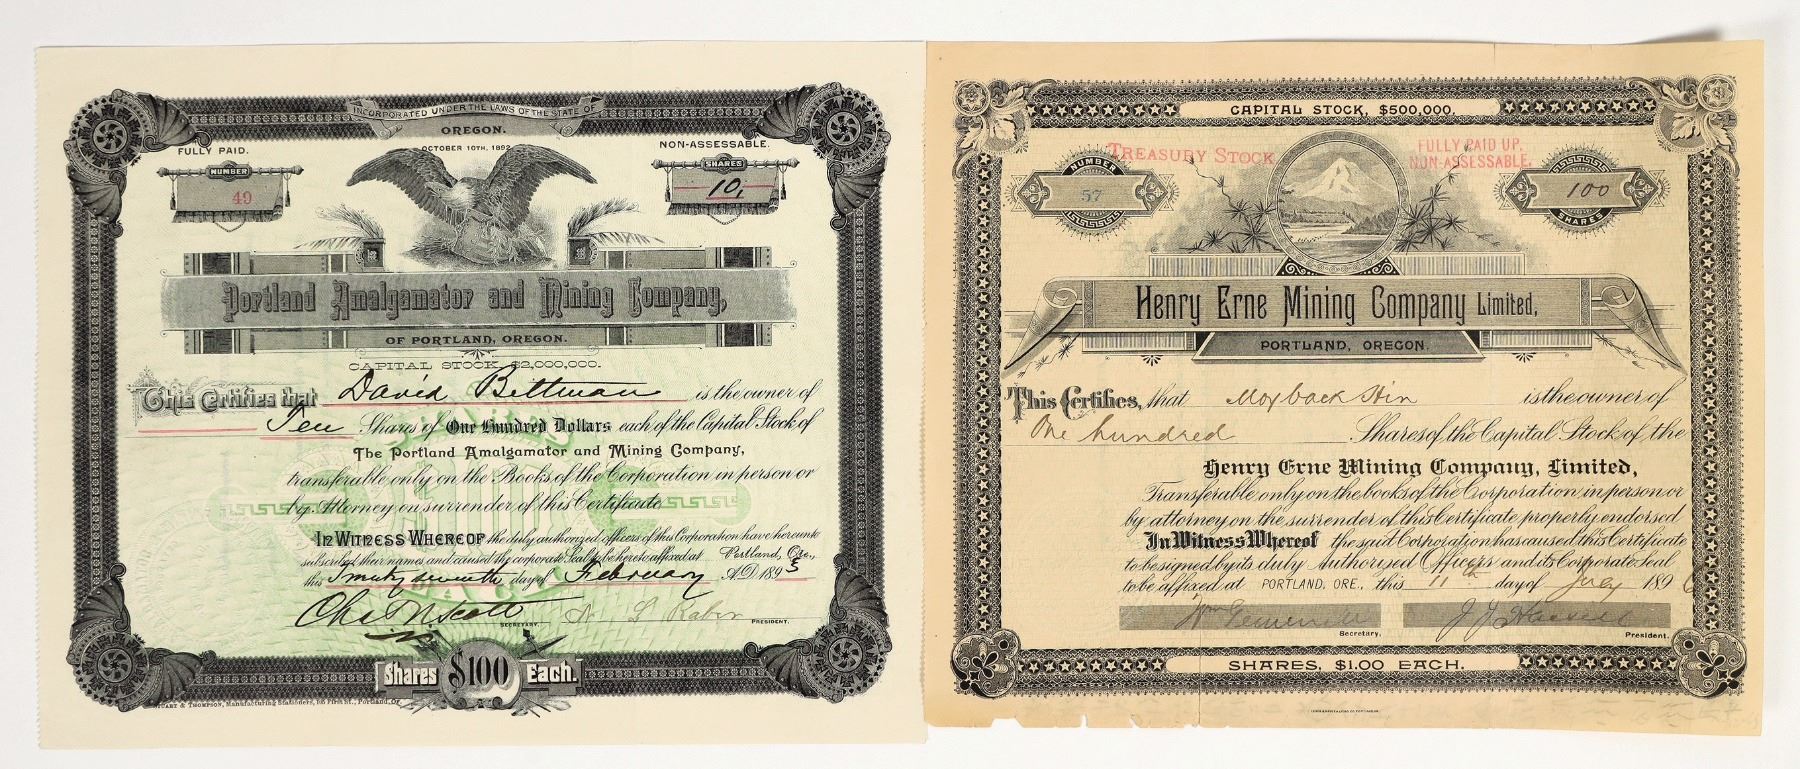 INCORPORATED UNDER THE LAWS OF THE STATE OF
OREGON.
OCTOBER 10TH, 1892
FULLY PAID.
NON-ASSESSABLE.
NUMBER
49
SHARES
10,
Portland Amalgamator and Mining Company,
OF PORTLAND, OREGON.
CAPITAL STOCK $2,000,000.
This Certifies that David Bettman is the owner of
Ten Shares of One Hundred Dollars each of the Capital Stock of
The Portland Amalgamator and Mining Company,
transferable only on the Books of the Corporation in person or
by Attorney on surrender of this Certificate
IN WITNESS WHEREOF the duly authorized officers of this Corporation have hereunto
subscribed their names and caused the corporate Seal to be hereto affixed at Portland, Ore.,
this Twenty seventh day of February A.D. 1893
SECRETARY.
PRESIDENT.
Shares $100 Each.
& THOMPSON, Manufacturing Stationers, First St., Portland, Or.
CAPITAL STOCK, $500,000.
TREASURY STOCK
FULLY PAID UP.
NON-ASSESSABLE.
NUMBER
57
100
SHARES
Henry Erne Mining Company Limited,
PORTLAND, OREGON.
This Certifies, that is the owner of
One hundred Shares of the Capital Stock of the
Henry Erne Mining Company, Limited,
Transferable only on the books of the Corporation, in person or
by attorney on the surrender of this Certificate properly endorsed
In Witness Whereof the said Corporation has caused this Certificate
to be signed by its duly Authorized Officers and its Corporate Seal
to be affixed at PORTLAND, ORE., this 11th day of July 1896
Secretary.
President.
SHARES, $1.00 EACH.